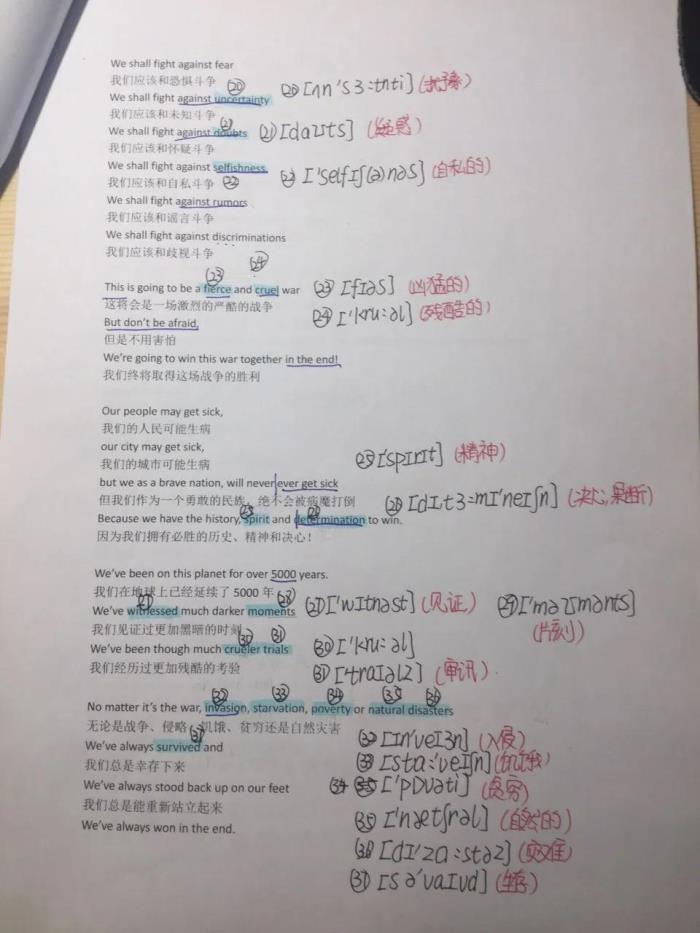 We shall fight against fear
我们应该和恐惧斗争 ⑳ ⑳ [ʌn'sɜ:tnti] (犹豫)
We shall fight against uncertainty
我们应该和未知斗争 ㉑
We shall fight against doubts ㉑ [daʊts] (疑惑)
我们应该和怀疑斗争
We shall fight against selfishness ㉒ ['selfɪʃ(ə)nəs] (自私的)
我们应该和自私斗争 ㉒
We shall fight against rumors
我们应该和谣言斗争
We shall fight against discriminations
我们应该和歧视斗争
㉓ ㉔
This is going to be a fierce and cruel war ㉓ [fɪəs] (凶猛的)
这将会是一场激烈的严酷的战争 ㉔ ['kru:əl] (残酷的)
But don't be afraid,
但是不用害怕
We're going to win this war together in the end!
我们终将取得这场战争的胜利
Our people may get sick,
我们的人民可能生病
our city may get sick,
我们的城市可能生病 ㉕ ['spɪrɪt] (精神)
but we as a brave nation, will never ever get sick
但我们作为一个勇敢的民族，绝不会被病魔打倒 [dɪˌtɜ=mɪ'neɪʃn] (决心,果断)
㉕ ㉖
Because we have the history, spirit and determination to win.
因为我们拥有必胜的历史、精神和决心！
We've been on this planet for over 5000 years.
我们在地球上已经延续了 5000 年 ㉘
㉗
We've witnessed much darker moments ['wɪtnəst] (见证) ㉙ ['məʊmənts]
我们见证过更加黑暗的时刻 ㉚ ㉛ (片刻)
We've been though much crueler trials ㉚ ['kru:əl]
我们经历过更加残酷的考验 ㉛ [traɪəlz] (审讯)
㉜ ㉝ ㉞ ㉟ ㊱
No matter it's the war, invasion, starvation, poverty or natural disasters
无论是战争、侵略、饥饿、贫穷还是自然灾害 ㉜ [ɪn'veɪʒn] (入侵)
㊲
We've always survived and ㉝ [sta:'veɪʃn] (饥饿)
我们总是幸存下来
We've always stood back up on our feet ㉞ ['pɒvəti] (贫穷)
我们总是能重新站立起来 ㉟ ['nætʃrəl] (自然的)
We've always won in the end.
㊱ [dɪ'zɑ:stəz] (灾难)
㊲ [sə'vaɪvd] (生存)